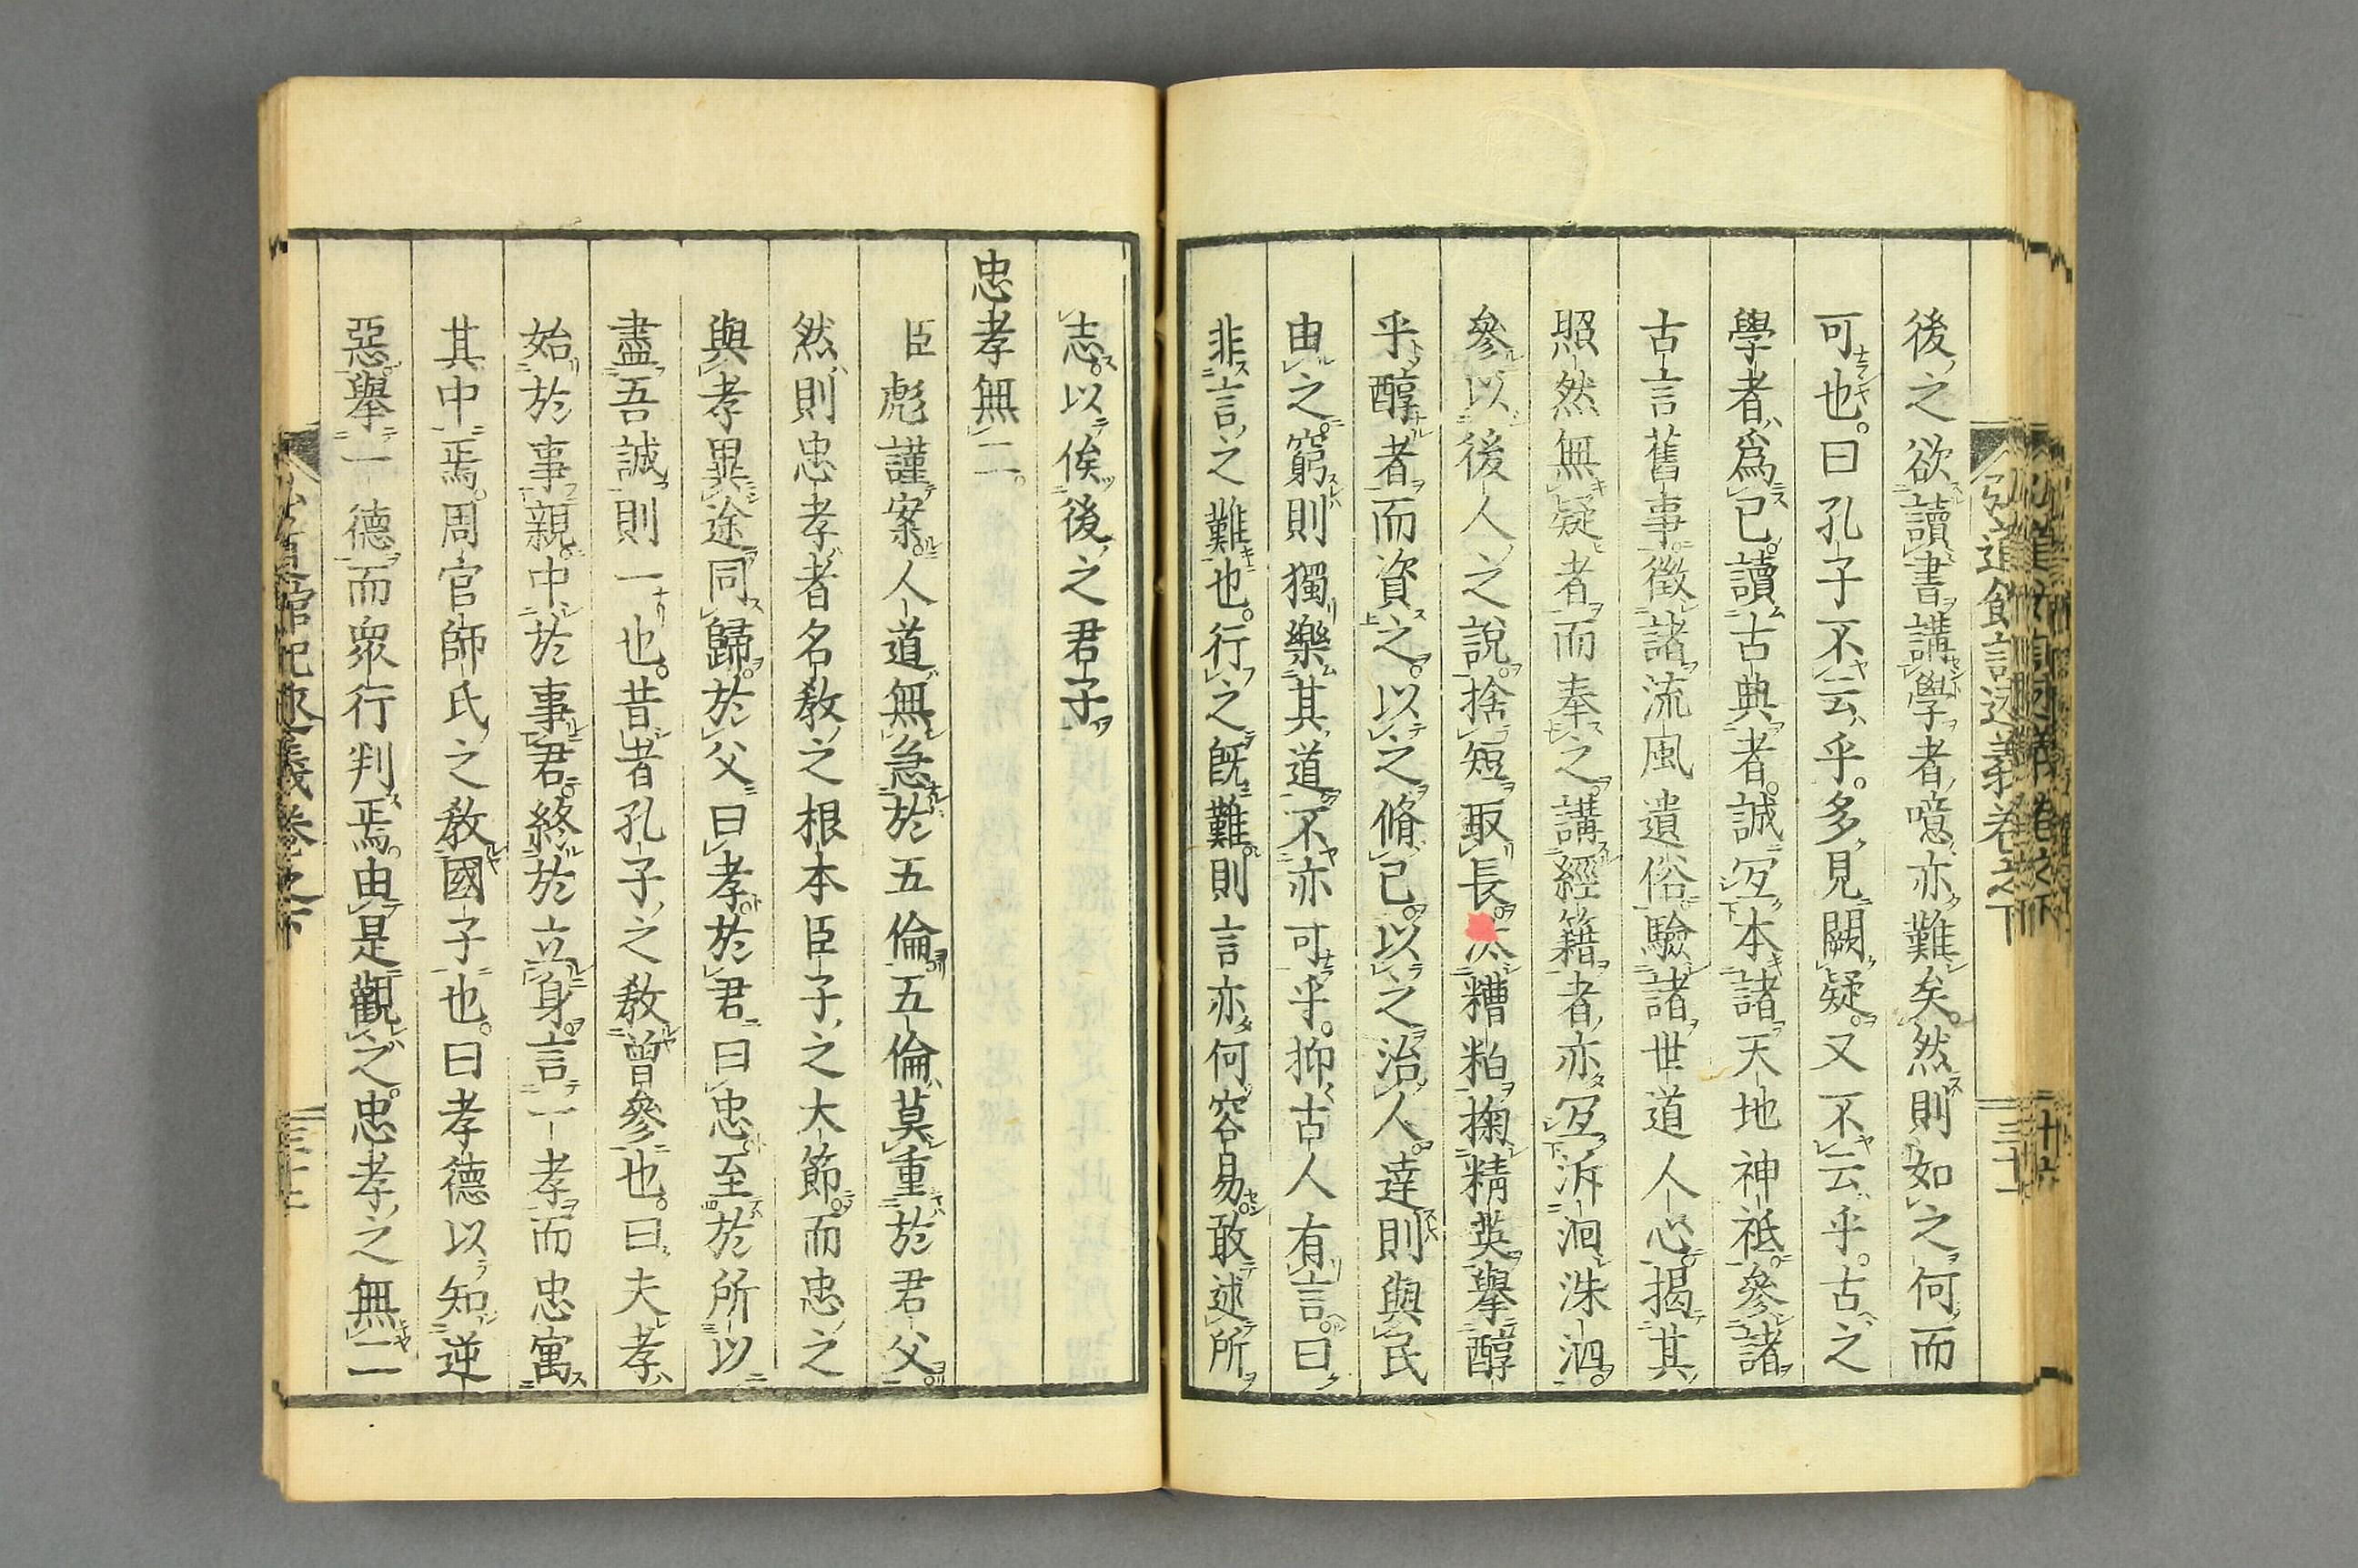 後之欲讀書講學者噫亦難矣然則如之何而
可也曰孔子不云乎多見闕疑又不云乎古之
學者爲己讀古典者誠宜本諸天地神祇參諸
古言舊事徵諸流風遺俗驗諸世道人心揭其
照然無疑者而奉之講經籍者亦宜泝洄洙泗
參以後人之說捨短取長汰糟粕掬精英擧醇
乎醇者而資之以之脩己以之治人達則與民
由之窮則獨樂其道不亦可乎抑古人有言曰
非言之難也行之旣難則言亦何容易敢述所
志以俟後之君子
忠孝無二
臣彪謹案人道無急於五倫五倫莫重於君父
然則忠孝者名敎之根本臣子之大節而忠之
與孝異途同歸於父曰孝於君曰忠至於所以
盡吾誠則一也昔者孔子之敎曾參也曰夫孝
始於事親中於事君終於立身言一孝而忠寓
其中焉周官師氏之敎國子也曰孝德以知逆
惡擧一德而衆行判焉由是觀之忠孝之無二